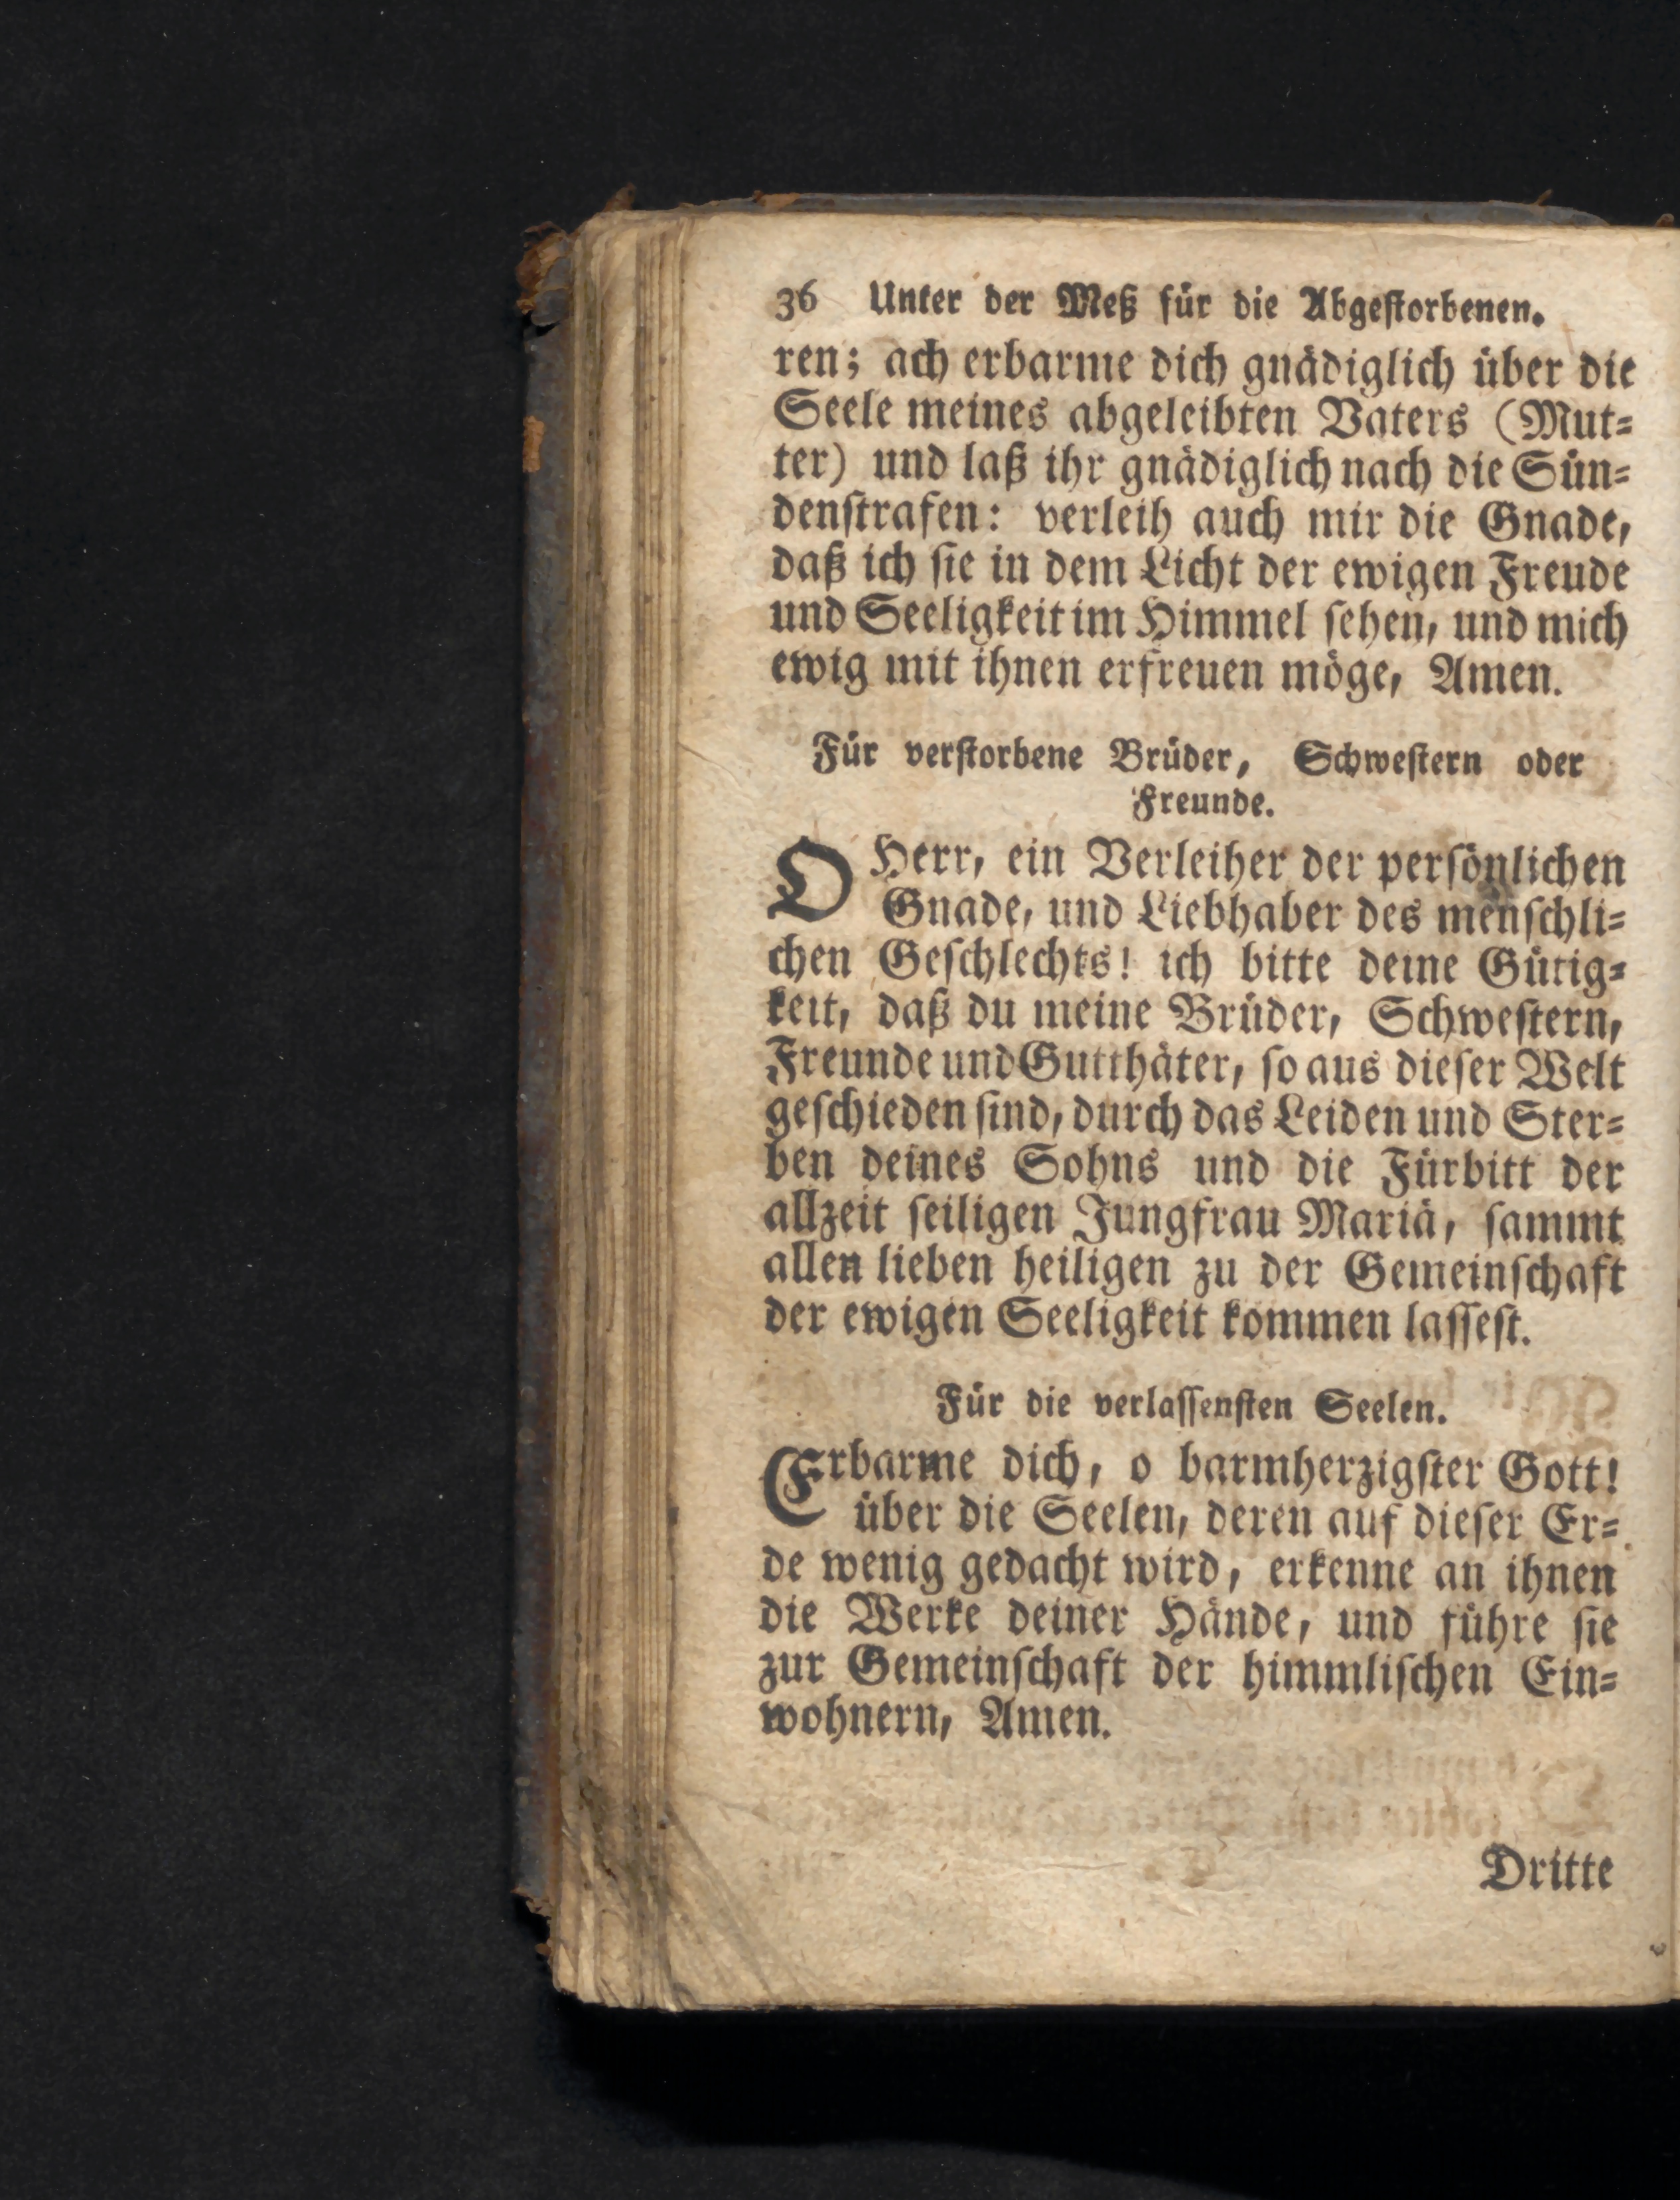 36 Unter der Meß für die Abgeſtorbenen.
ren; ach erbarme dich gnädiglich über die
Seele meines abgeleibten Vaters (Mut⸗
ter) und laß ihr gnädiglich nach die Sün⸗
denſtrafen: verleih auch mir die Gnade,
daß ich ſie in dem Licht der ewigen Freude
und Seeligkeit im Himmel ſehen, und mich
ewig mit ihnen erfreuen möge, Amen.
Für verſtorbene Brüder, Schweſtern oder
Freunde.
O Herr, ein Verleiher der perſönlichen
Gnade, und Liebhaber des menſchli⸗
chen Geſchlechts! ich bitte deine Gütig⸗
keit, daß du meine Brüder, Schweſtern,
Freunde und Gutthäter, ſo aus dieſer Welt
geſchieden ſind, durch das Leiden und Ster⸗
ben deines Sohns und die Fürbitt der
allzeit ſeiligen Jungfrau Mariä, ſammt
allen lieben heiligen zu der Gemeinſchaft
der ewigen Seeligkeit kommen laſſeſt.
Für die verlaſſenſten Seelen.
Erbarme dich, o barmherzigſter Gott!
über die Seelen, deren auf dieſer Er⸗
de wenig gedacht wird, erkenne an ihnen
die Werke deiner Hände, und führe ſie
zur Gemeinſchaft der himmliſchen Ein⸗
wohnern, Amen.
Dritte